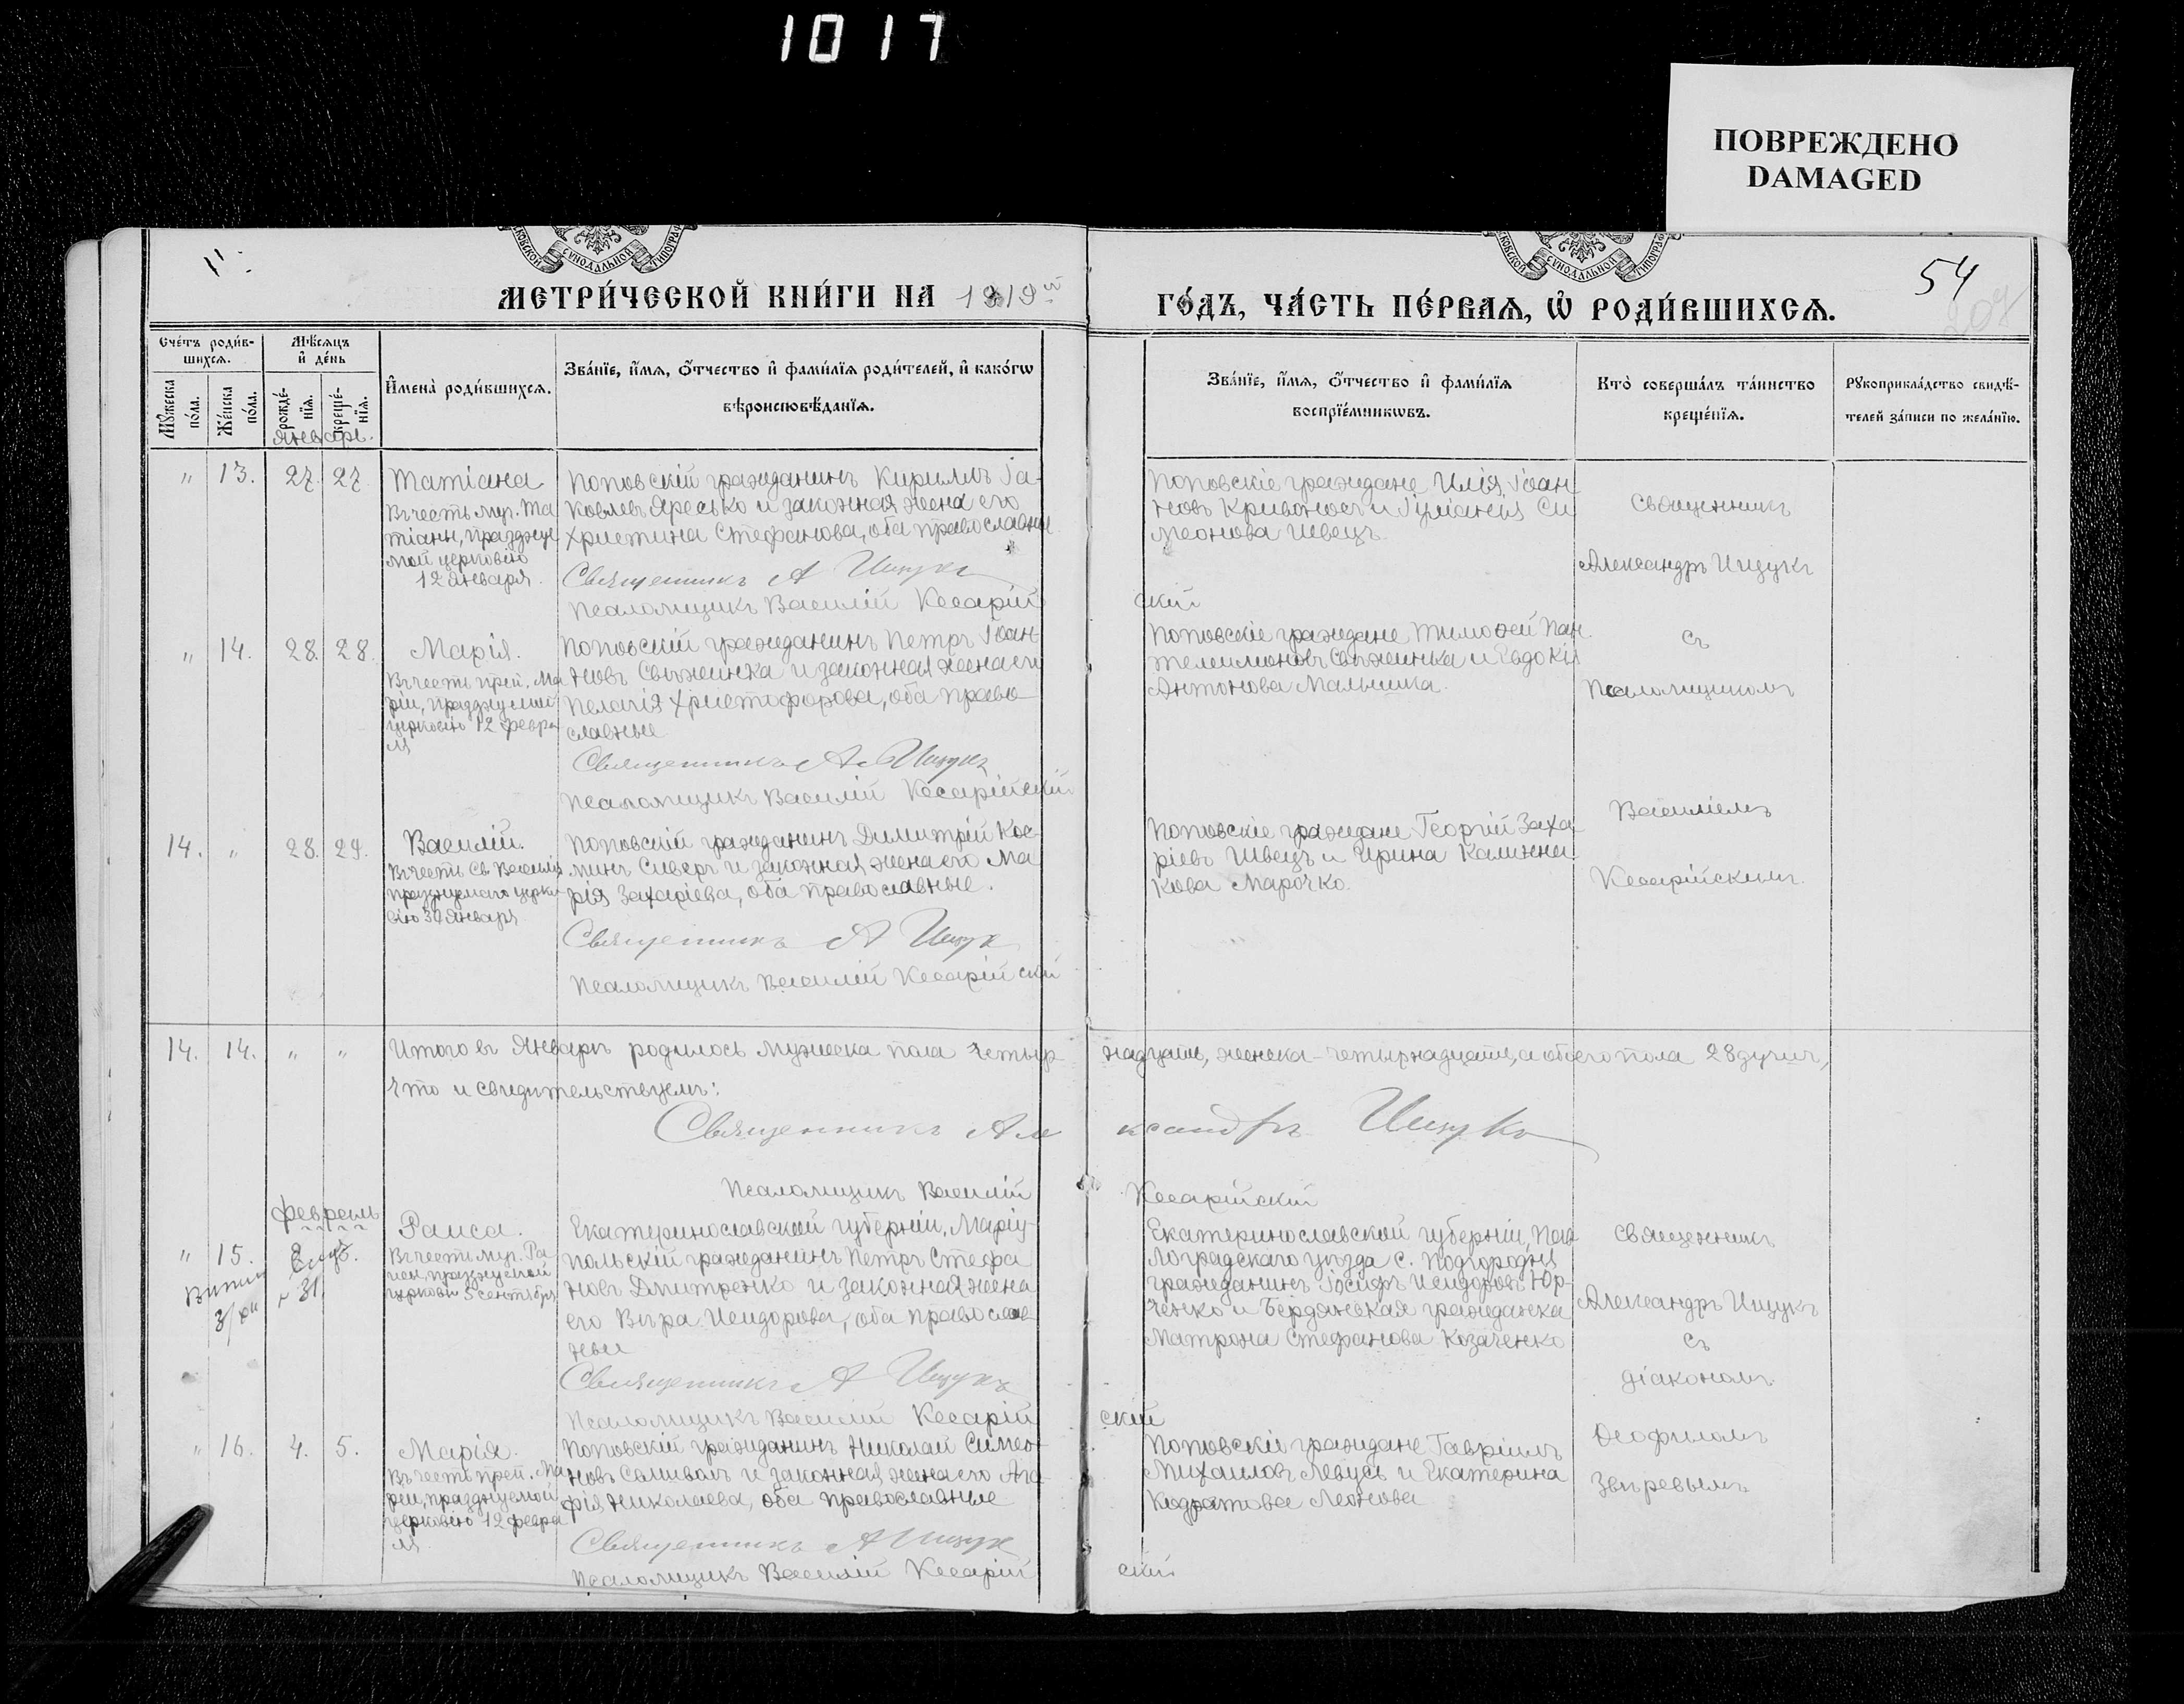 1017
ПОВРЕЖДЕНО
DAMAGED
МЕТРИ́ЧЕСКОЙ КНИ́ГИ НА 1919й
ГО́ДЪ, ЧА́СТЬ ПЕ́РВАѦ, Ѡ҆ РОДИ́ВШИХСѦ.
54
207
Сче́тъ роди́в-
шихсѧ.
Мѣ́сѧцъ
и҆ де́нь
Мꙋ́жеска
по́ла.
Же́нска
по́ла.
рожде́-
нїѧ.
креще́-
нїѧ.
И҆мена̀ роди́вшихсѧ.
Зва́нїе, и҆́мѧ, ѻ҆́тчество и҆ фами́лїѧ роди́телей, и҆ како́гѡ
вѣроисповѣ́данїѧ.
Зва́нїе, и҆́мѧ, ѻ҆́тчество и҆ фами́лїѧ
воспрїе́мникѡвъ.
Кто̀ соверша́лъ та́инство
креще́нїѧ.
Рꙋкоприкла́дство свидѣ́-
телей за́писи по жела́нїю.
Январь.
" 13. 27. 27.
Татіана
Въ честь муч. Та
тіаны, празднуе
мой церковію
12 января.
Поповскій гражданинъ Кириллъ Іа-
ковлевъ Яресько и законная жена его
Христина Стефанова, оба православные
Священникъ А Ищукъ
Псаломщикъ Василій Кесарій
скій
Поповскіе граждане Илія Іоан
новъ Кривоносъ и Іуліанія Си
меонова Швецъ.
Священникъ
Александръ Ищукъ
съ
Псаломщикомъ
Василіемъ
Кесарійскимъ.
" 14. 28. 28.
Марія.
Въ честь преп. Ма
ріи, празднуемой
церковію 12 февра
ля
Поповскій гражданинъ Петръ Іоан-
новъ Свѣженка и законная жена его
Пелагія Христофорова, оба право
славные
Священникъ А. Ищукъ
Псаломщикъ Василій Кесарійскій
Поповскіе граждане Тимоѳей Пан.
телеимоновъ Свѣженка и Евдокія
Антонова Малышка.
14. " 28. 29.
Василій.
Въ честь Св. Василія
празднуемаго церко
вію 30 января
Поповскій гражданинъ Димитрій Кос-
минъ Сиверъ и законная жена его Ма
рія Захаріева, оба православные.
Священникъ А Ищук
Псаломщикъ Василій Кесарійскій
Поповскіе граждане Георгій Заха-
ріевъ Швецъ и Ирина Калинни
кова Марочко.
14. 14. " " Итого въ Январѣ родилось мужеска пола четыр надцать, женска - четырнадцать, а обоего пола 28 душъ,
что и свидѣтельствуемъ:
Священникъ Але ксандръ Ищукъ
Псаломщикъ Василій Кесарійскій
Февраль
" 15.
31
Раиса.
Въ честь муч. Ра
исы, празднуемой
церковію 5 сентября
Екатеринославской губерніи, Маріу-
польскій гражданинъ Петръ Стефа
новъ Дмитренко и законная жена
его Вѣра Исидорова, оба православ
ные
Священникъ А Ищукъ
Псаломщикъ Василій Кесарій
скій
Екатеринославской губерніи, Пав
лоградскаго уѣзда с. Подгородня
гражданинъ Іосифъ Исидоровъ Юр-
ченко и Бердянская гражданка
Матрона Стефанова Козаченко
Священникъ
Александръ Ищукъ
съ
діакономъ
Ѳеофиломъ
Звѣревымъ
" 16. 4. 5.
Марія.
Въ честь преп. Ма
ріи, празднуемой
церковію 12 февра
ля.
Поповскій гражданинъ Николай Симео-
новъ Саливонъ и законная жена его Ага
фія Николаева, оба православные
Священникъ А Ищук
Псаломщикъ Василій Кесарій
скій
Поповскіе граждане Гавріилъ
Михаиловъ Левусь и Екатерина
Кодратова Леонова